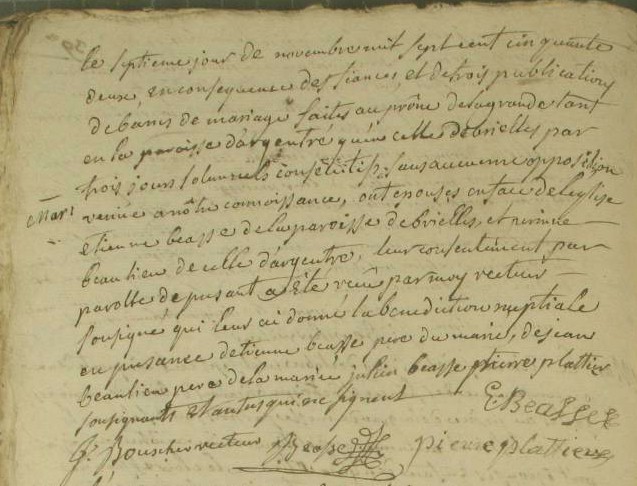 le septieme jour de novembre mil sept cent cinquante
deux, en consequence des fiances, et de trois publications
de bans de mariage faites au prône de la grande tant
en la paroisse d'argentré qu'en celle de brielles par
trois jours solennels consécutifs, sans aucune opposition
Mar:
venüe a nôtre connoissance, ont épousés en face de l'eglise
etienne beasse de la paroisse de brielles, et perinne
beaulieu de celle d'argentré, leur consentement par
parolle de presant a été reçû par moy recteur
sousigné qui leur ai donné la benediction nuptiale
en presance d'etienne beasse pere du marié, de jean
beaulieu pere de la mariée julien beasse pierre plattier
sousignants et autres qui ne signent
E: Beasse
J: Bouscher recteur J Beasse pierre plattiere